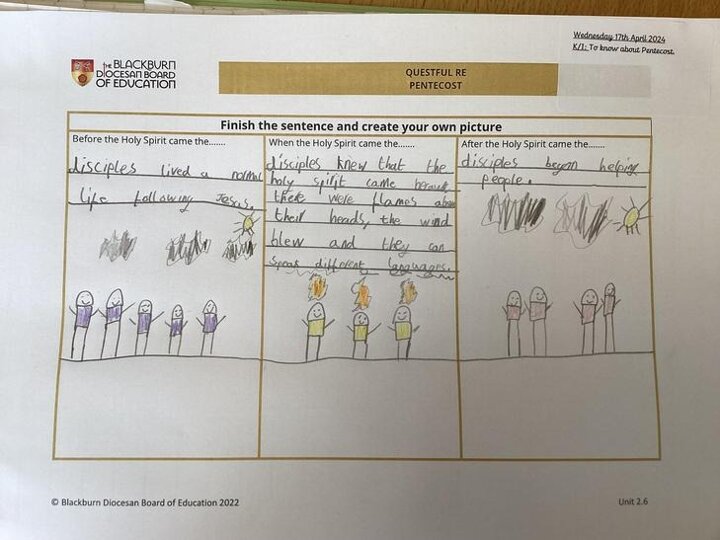 Wednesday 17th April 2024
K/I: To know about Pentecost.
the BLACKBURN
DIOCESAN BOARD
OF EDUCATION
QUESTFUL RE
PENTECOST
Finish the sentence and create your own picture
Before the Holy Spirit came the.......
disciples lived a normal
life following Jesus.
When the Holy Spirit came the.......
disciples knew that the
holy spirit came because
there were flames above
their heads, the wind
blew and they can
speak different languages.
After the Holy Spirit came the.......
disciples began helping
people.
© Blackburn Diocesan Board of Education 2022
Unit 2.6